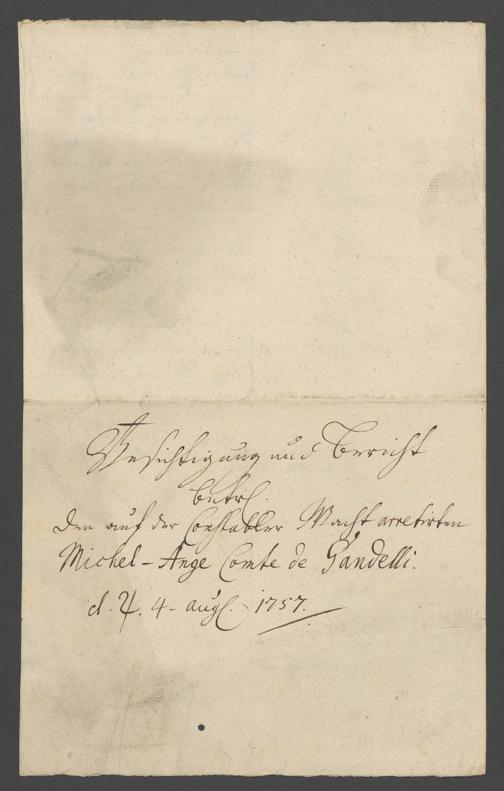 Besichtigung und Bericht
betrf.
den auf der Constabler Wacht arretirten
Michel-Ange Comte de Gandelli.
d. ♃. 4. augl. 1757.